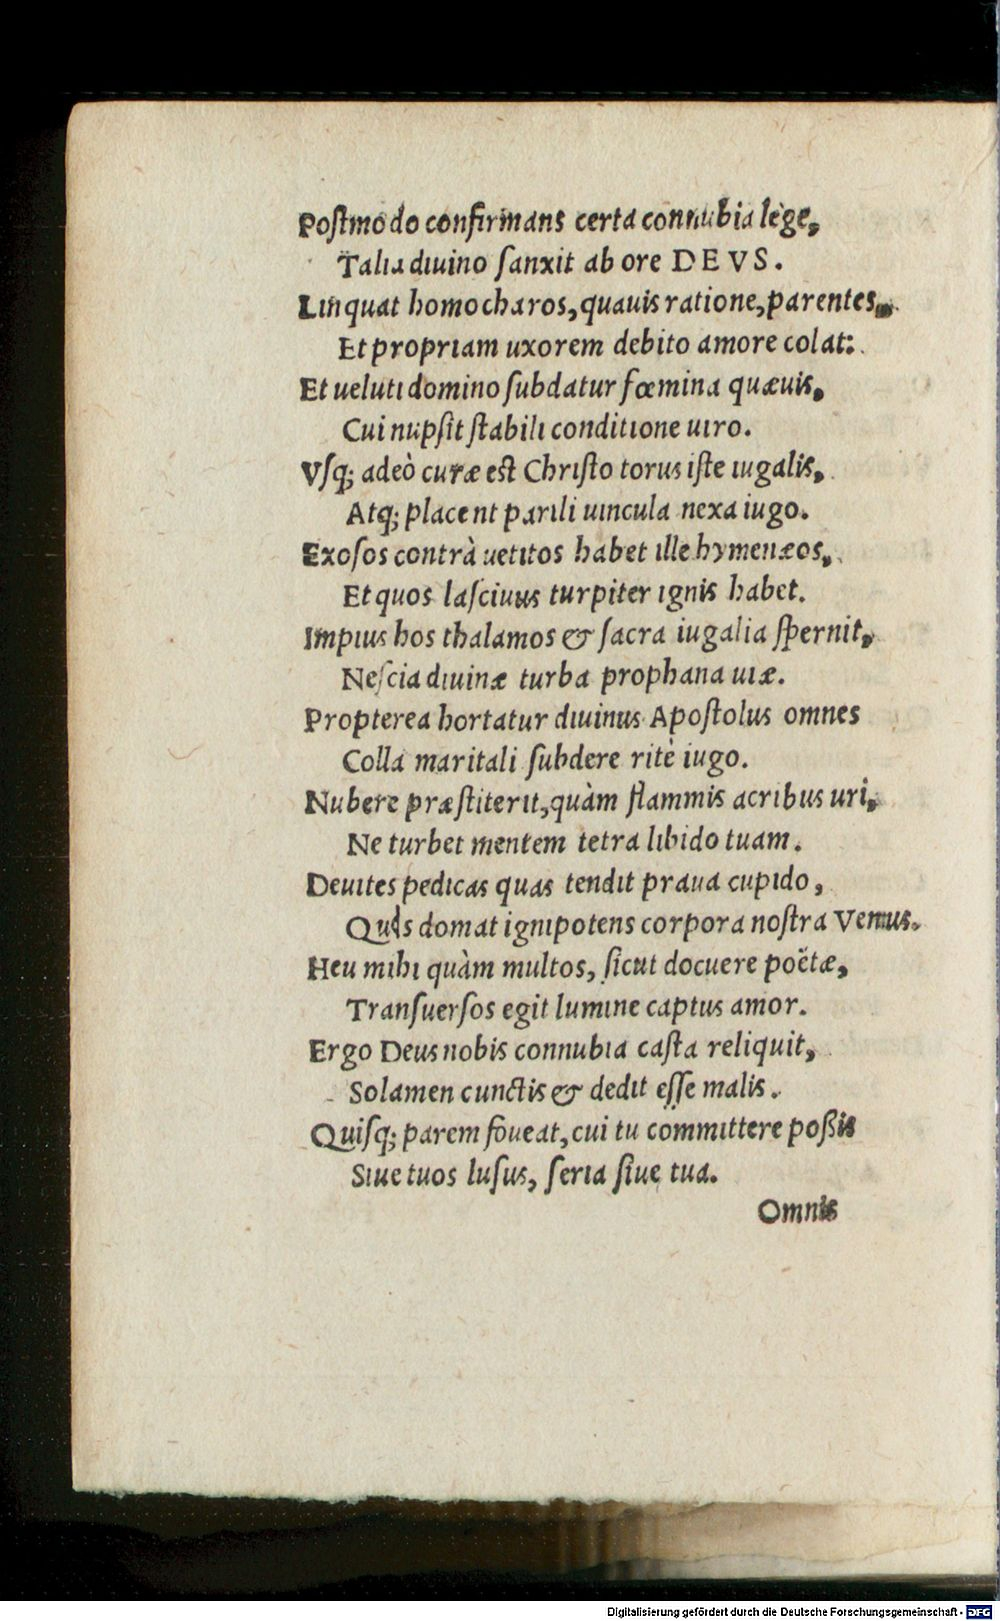 Poſtmodo confirmans certa connubia lege,
Talia diuino ſanxit ab ore DEVS.
Linquat homo charos, quauis ratione, parentes,
Et propriam uxorem debito amore colat:
Et ueluti domino ſubdatur fœmina quæuis,
Cui nupſit ſtabili conditione uiro.
Vſq; adeò curæ est Chriſto torus iſte iugalis,
Atq; placent parili uincula nexa iugo.
Exoſos contrà uetitos habet ille hymenæos,
Et quos laſciuus turpiter ignis habet.
Impius hos thalamos & ſacra iugalia ſpernit,
Neſcia diuinæ turba prophana uiæ.
Propterea hortatur diuinus Apoſtolus omnes
Colla maritali ſubdere ritè iugo.
Nubere præſtiterit, quàm flammis acribus uri,
Ne turbet mentem tetra libido tuam.
Deuites pedicas quas tendit praua cupido,
Quîs domat ignipotens corpora noſtra Venus.
Heu mihi quàm multos, ſicut docuere poëtæ,
Tranſuerſos egit lumine captus amor.
Ergo Deus nobis connubia caſta reliquit,
Solamen cunctis & dedit eſſe malis.
Quiſq; parem foueat, cui tu committere poßis
Siue tuos luſus, ſeria ſiue tua.
Omnis
Digitalisierung gefördert durch die Deutsche Forschungsgemeinschaft - DFG